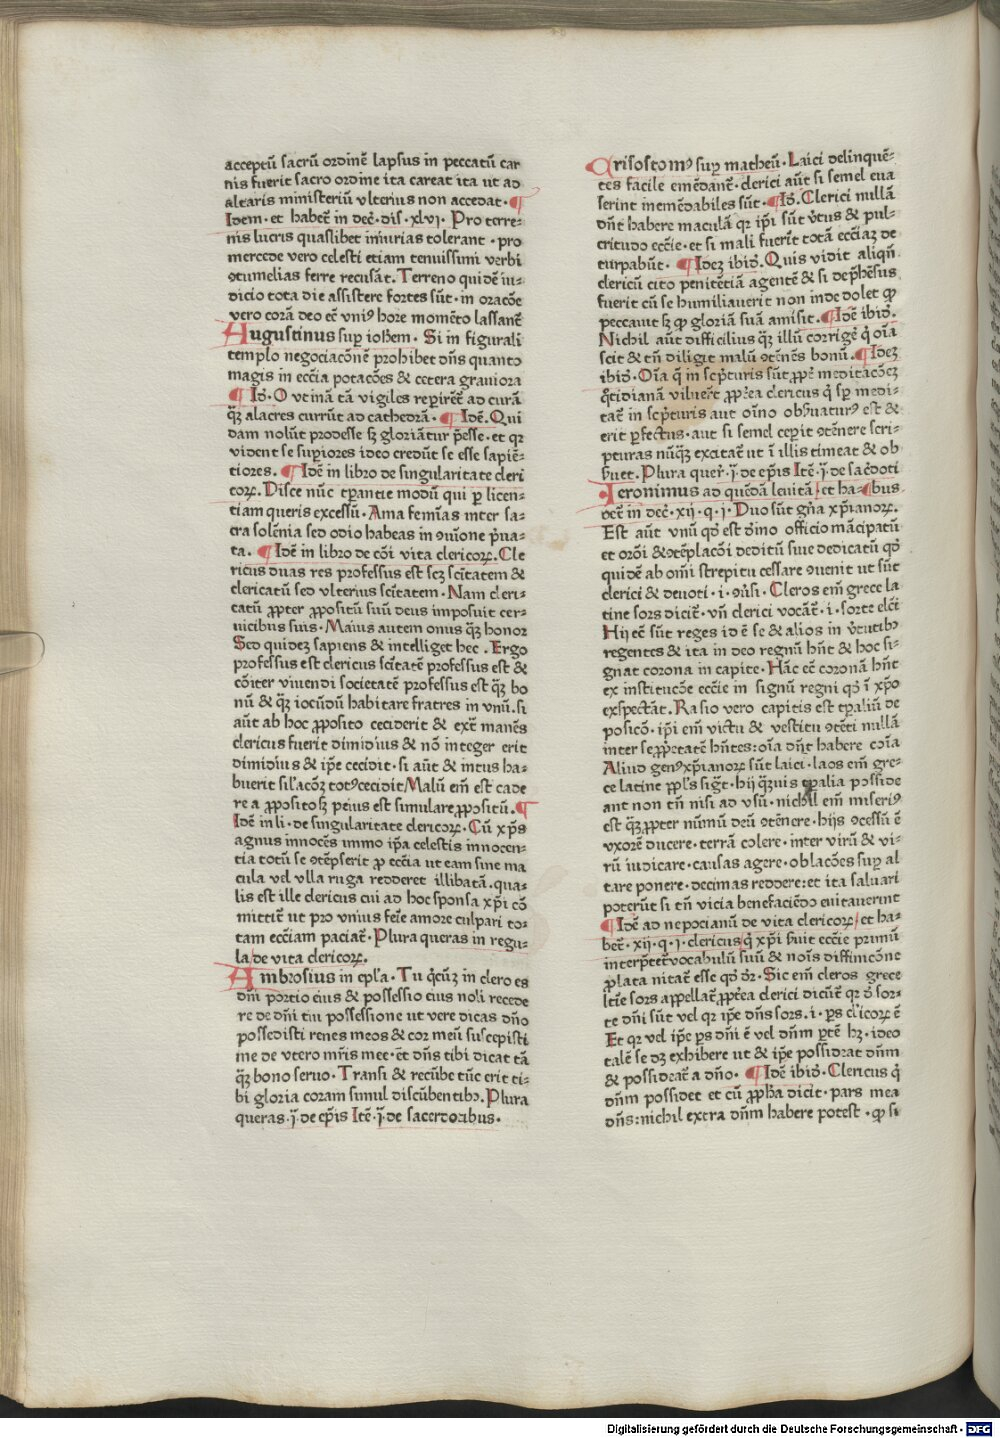 acceptū sacrū ordinē lapsus in peccatū car
nis fuerit sacro ordine ita careat ita ut ad
altaris ministeriū vlterius non accedat. ¶
Idem. et habet̄ in dec̄. dis. xlvi. Pro terre⸗
nis lucris quaslibet iniurias tolerant. pro
mercede vero celesti etiam tenuissimi verbi
ꝯtumelias ferre recusāt. Terreno quidē iu⸗
dicio tota die assistere fortes sūt. in oracōe
vero corā deo eē vniꝰ hore momēto lassant̄
Augustinus suꝑ ioh̄em. Si in figurali
templo negociacōnē prohibet dn̄s quanto
magis in ecc̄ia potacōes & cetera grauiora
¶ Id̄. O vtinā tā vigiles reperirēt̄ ad curā
qꝫ̄ alacres currūt ad cathedrā. ¶ Idē. Qui
dam nolūt prodesse sꝫ gloriātur p̄esse. et qr
vident se suꝑiores ideo credūt se esse sapiē⸗
tiores. ¶ Idē in libro de singularitate cleri
coꝝ. Disce nūc tꝑantie modū qui ꝑ licen⸗
tiam queris excessū. Ama femīas inter sa⸗
cra solēnia sed odio habeas in ꝯuiōne p̄ua⸗
ta. ¶ Idē in libro de cōi vita clericoꝝ. Cle
ricus duas res professus est scꝫ scītatem &
clericatū sed vlterius scītatem. Nam cleri⸗
catū ꝓpter ꝓpositū suū deus imposuit cer⸗
uicibus suis. Maius autem onus qꝫ̄ honor
Sed quidez sapiens & intelliget hec. Ergo
professus est clericus scītatē professus est &
cōiter viuendi societatē professus est qꝫ̄ bo
nū & qꝫ̄ iocūdū habitare fratres in vnū. si
aūt ab hoc ꝓposito ceciderit & ext̄ manēs
clericus fuerit dimidius & nō integer erit
dimidius & ip̄e cecidit. si aūt & intus ha⸗
buerit sil'acōꝫ totꝰcecidit Malū em̄ est cade
re a ꝓpositosꝫ peius est simulare ꝓpositū. ¶
Idē in li. de singularitate clericoꝝ. Cū xp̄s
agnus innocēs immo ip̄a celestis innocen⸗
tia totū se ꝯtēpserit ꝓ ecc̄ia ut eam sine ma
cula vel vlla ruga redderet illibatā. qua⸗
lis est ille clericus cui ad hoc sponsa xp̄i cō
mittit̄ ut pro vnius feīe amore culpari to⸗
tam ecc̄iam paciat̄. Plura queras in regu⸗
la de vita clericoꝝ.
Ambrosius in epl'a. Tu q̇cūꝫ in clero es
dn̄i portio eius & possessio eius noli recede
re de dn̄i tui possessione ut vere dicas dn̄o
possedisti renes meos & cor meū suscepisti
me de vtero mr̄is mee. et dn̄s tibi dicat tā
qꝫ̄ bono seruo. Transi & recūbe tūc erit ti⸗
bi gloria coram simul discūbentibꝰ. Plura
queras. ī. de ep̄is Itē. ī. de sacerdotibus.
Crisostomꝰ suꝑ matheū. Laici delinquē⸗
tes facile emēdant̄. clerici aūt si semel eua
serint inemēdabiles sūt. ¶ Id̄. Clerici nullā
dn̄t habere maculā qr ip̄i sūt v̄tus & pul⸗
critudo ecc̄ie. et si mali fuerīt totā ecc̄iaꝫ de
turpabūt. ¶ Idez ibid̄. Quis vidit aliqn̄
clericū cito penitētiā agentē & si dep̄hēsus
fuerit cū se humiliauerit non inde dolet qꝓ
peccauit sꝫ qꝓ gloriā suā amisit. ¶ Idē ibid̄.
Nichil aūt difficilius qꝫ̄ illū corrige̊ q̇ oīa
scit & tn̄ diligit malū ꝯtēnēs bonū. ¶ Idez
ibid̄. Oīa q̄ in sc̄pturis sūt ꝓp̄e meditacōeꝫ
q̇tidianā viluer̄t ꝓpt̄ea clericus q̇ sꝑ medi⸗
tat̄ in sc̄pturis aut oīno obs̄uaturꝰ est &
erit ꝑfectus. aut si semel ceꝑit ꝯtēnere scri⸗
pturas nūqꝫ̄ excitat̄ ut ī illis timeat & ob
s̄uet. Plura quer̄. ī. de ep̄is Itē. ī. de sac̄doti
Ieronimus ad quēdā leuitā et ha⸗ ¶bus.
bet̄ in dec̄. xii. q. i. Duo sūt gn̄a xp̄ianoꝝ.
Est aūt vnū qd̄ est dīno officio mācipatū
et orōi & ꝯtēplacōi deditū siue dedicatū qd̄
quidē ab om̄i strepitu cessare ꝯuenit ut sūt
clerici & deuoti. i. ꝯūsi. Cleros em̄ grece la
tine sors dicit̄. vn̄ clerici vocāt̄. i. sorte elc̄i
Hij eē sūt reges id ē se & alios in v̄tutibꝰ
regentes & ita in deo regnū hn̄t & hoc si⸗
gnat corona in capite. Hāc eē coronā hn̄t
ex institucōe ecc̄ie in signū regni qd̄ ī xp̄o
exspectāt. Rasio vero capitis est tꝑaliū de
posicō. ip̄i em̄ victu & vestitu ꝯtēti nullā
inter se ꝓpetatē hn̄tes: oīa dn̄t habere cōia
Aliud genꝰxp̄ianoꝝ sūt laici. laos em̄ gre⸗
ce latine ppl's sigt̄. hij qꝫ̄uis tꝑalia posside
ant non tn̄ nisi ad vsū. nichil em̄ miseriꝰ
est qꝫ̄ ꝓpter nūmū deū ꝯtēnere. hijs ꝯcessū ē
vxorē ducere. terrā colere. inter virū & vi⸗
rū iudicare. causas agere. oblacōes suꝑ al
tare ponere. decimas reddere: et ita saluari
poterūt si tn̄ vicia benefaciēdo euitauerint
¶Idē ad nepocianū de vita clericoꝝ et ha⸗
bet̄. xij. q. i. clericus q̇ xp̄i s̄uit ecc̄ie primū
interp̄tet̄vocabulū suū & noīs diffinicōne
ꝓlata nitat̄ esse qd̄ dr̄. Sic em̄ cleros grece
lt̄īe sors appellat̄ ꝓpt̄ea clerici dicūt̄ qr d̄ sor⸗
te dn̄i sūt vel qr ip̄e dn̄s sors. i. ꝑs cl'icoꝝ ē
Et qr vel ip̄e ꝑs dn̄i ē vel dn̄m ꝑtē hꝫ. ideo
talē se dꝫ exhibere ut & ip̄e possideat dn̄m
& possideat̄ a dn̄o. ¶ Idē ibid̄. Clericus q̇
dn̄m possidet et cū ꝓph̄a dicit. pars mea
dn̄s: nichil extra dn̄m habere potest. qꝓ si
Digitalisierung gefördert durch die Deutsche Forschungsgemeinschaft - DFG